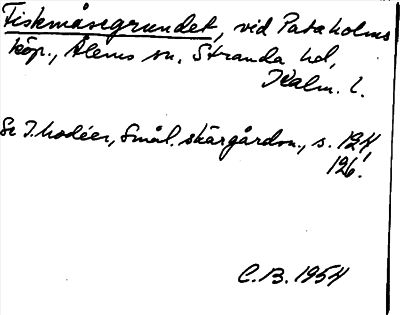 Fiskmåsegrundet, vid Pataholms
köp., Ålems sn. Stranda hd,
Kalm. l.
Se I. Modéer, Smål. skärgårdsn., s. 124,
126.
C.B. 1954